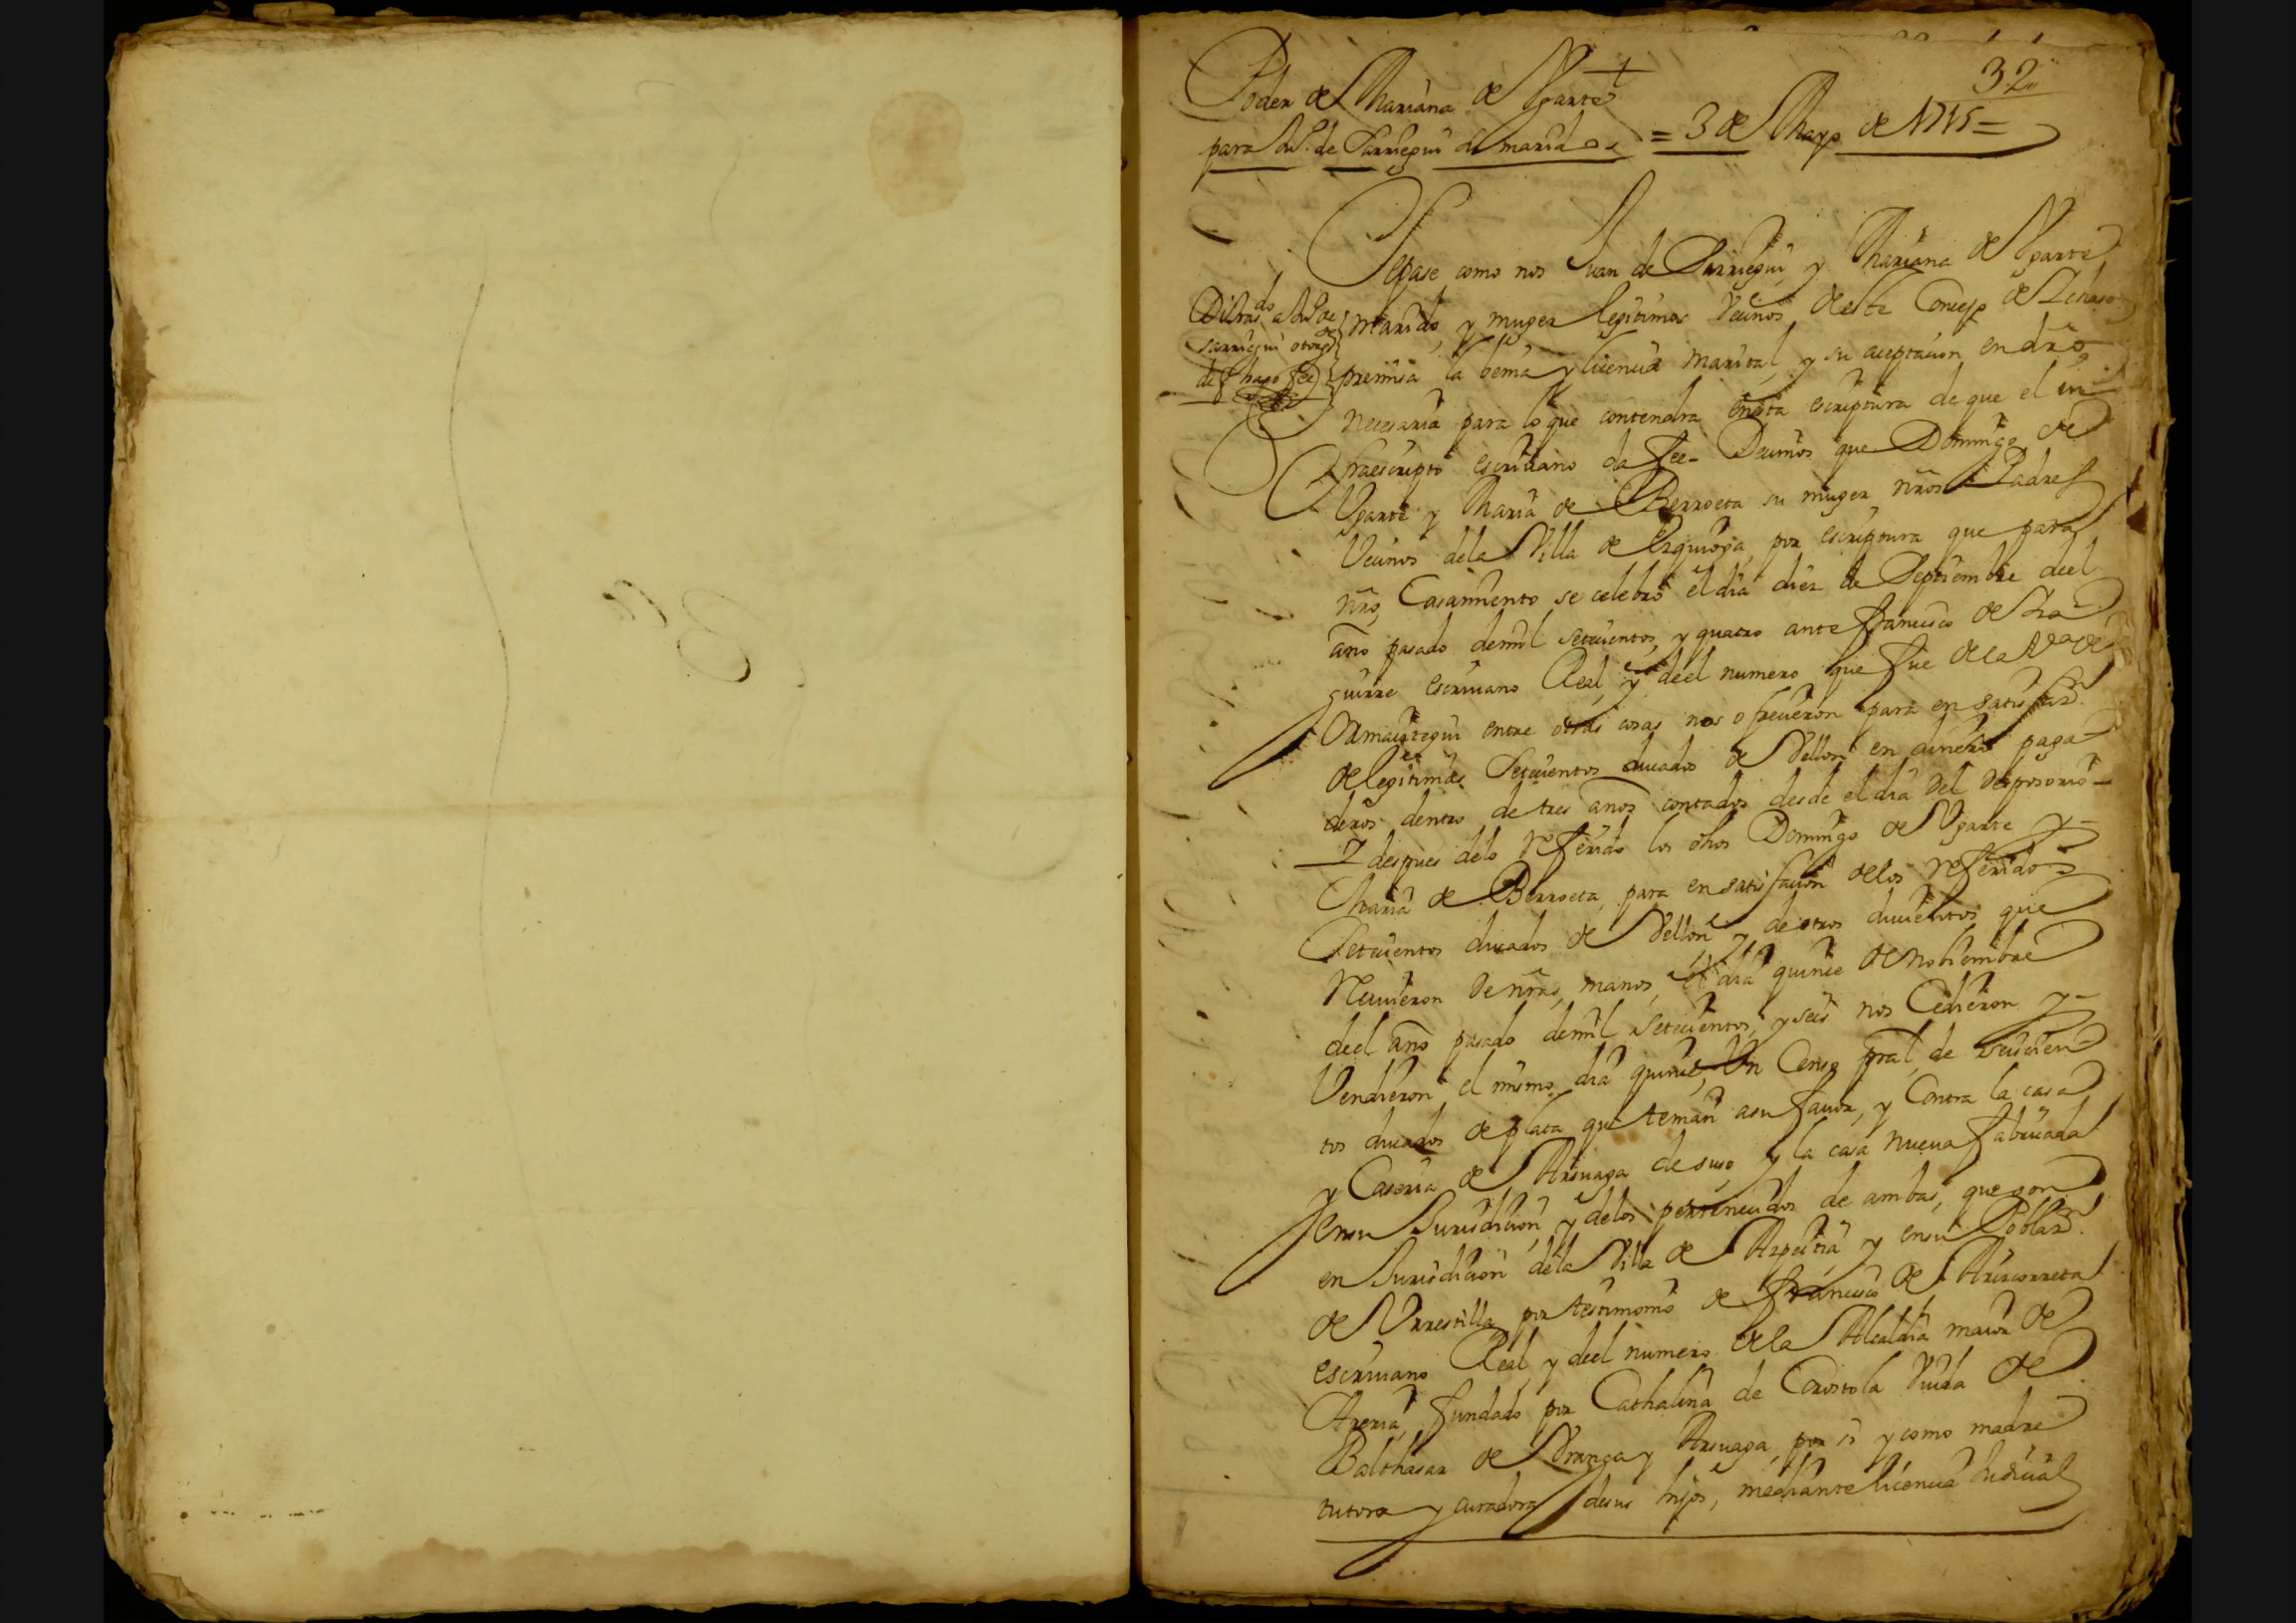 32
Poder de Mariana de Vgarte
para Ju.º de Sarriegui su marido = 3 de Mayo de 1715 =
Sepase como nos Juan de Sarriegui, y Mariana de Vgarte
marido, y muger legitimos Vecinos deste Concejo de Ichaso
premisa la Venia y licencia marital, y su aceptacion en dro
necesaria para lo que contendra en esta escriptura de que el in
fraescripto escriuano da fee = Decimos que Domingo de
Vgarte y Maria de Berroeta su muger nros Padres
Vecinos dela Villa de Ezquioga, por escriptura que para
nro Casamiento se celebro el dia diez de Septiembre deel
año pasado demil setecientos, y quatro ante francisco de
guirre escriuano Real, y deel numero que fue de la Vª de
Ormaiztegui entre otras cosas nos ofrecieron para en satisfaz.on
de legitimas Setecientos ducados de Vellon en dinero paga
deros dentro de tres años contados desde el dia del desposorio =
Y despues delo referido los dhos Domingo de Vgarte y =
Maria de Berroeta, para en satisfacion delos referidos
Setecientos ducados de Vellon y de otros ducientos que
Recuieron de nras manos, el dia quince de nobiembre
deel año pasado demil setecientos, y seis nos Cedieron y =
Vendieron el mismo dia quince, Vn Censo pral, de seiscien
tos ducados de plata que tenian asu fauor, y Contra la casa
y Caseria de Arsuaga de suso, y la casa nueua fabricada
en su Jurisdicion, y delos pertenecidos de ambas, que son
en Jurisdicion dela Villa de Azpeitia y ensu Poblaz.on
de Vrrestilla por testimonio de francisco de Arizcorreta
escriuano Real, y deel numero de la Alcaldia maior de
Areria, fundado por Cathalina de Corostola Viuda de
Balthasar de Vranga y Arsuaga, por si y como madre
tutora y curadora desus hijos, mediante licencia Judicial